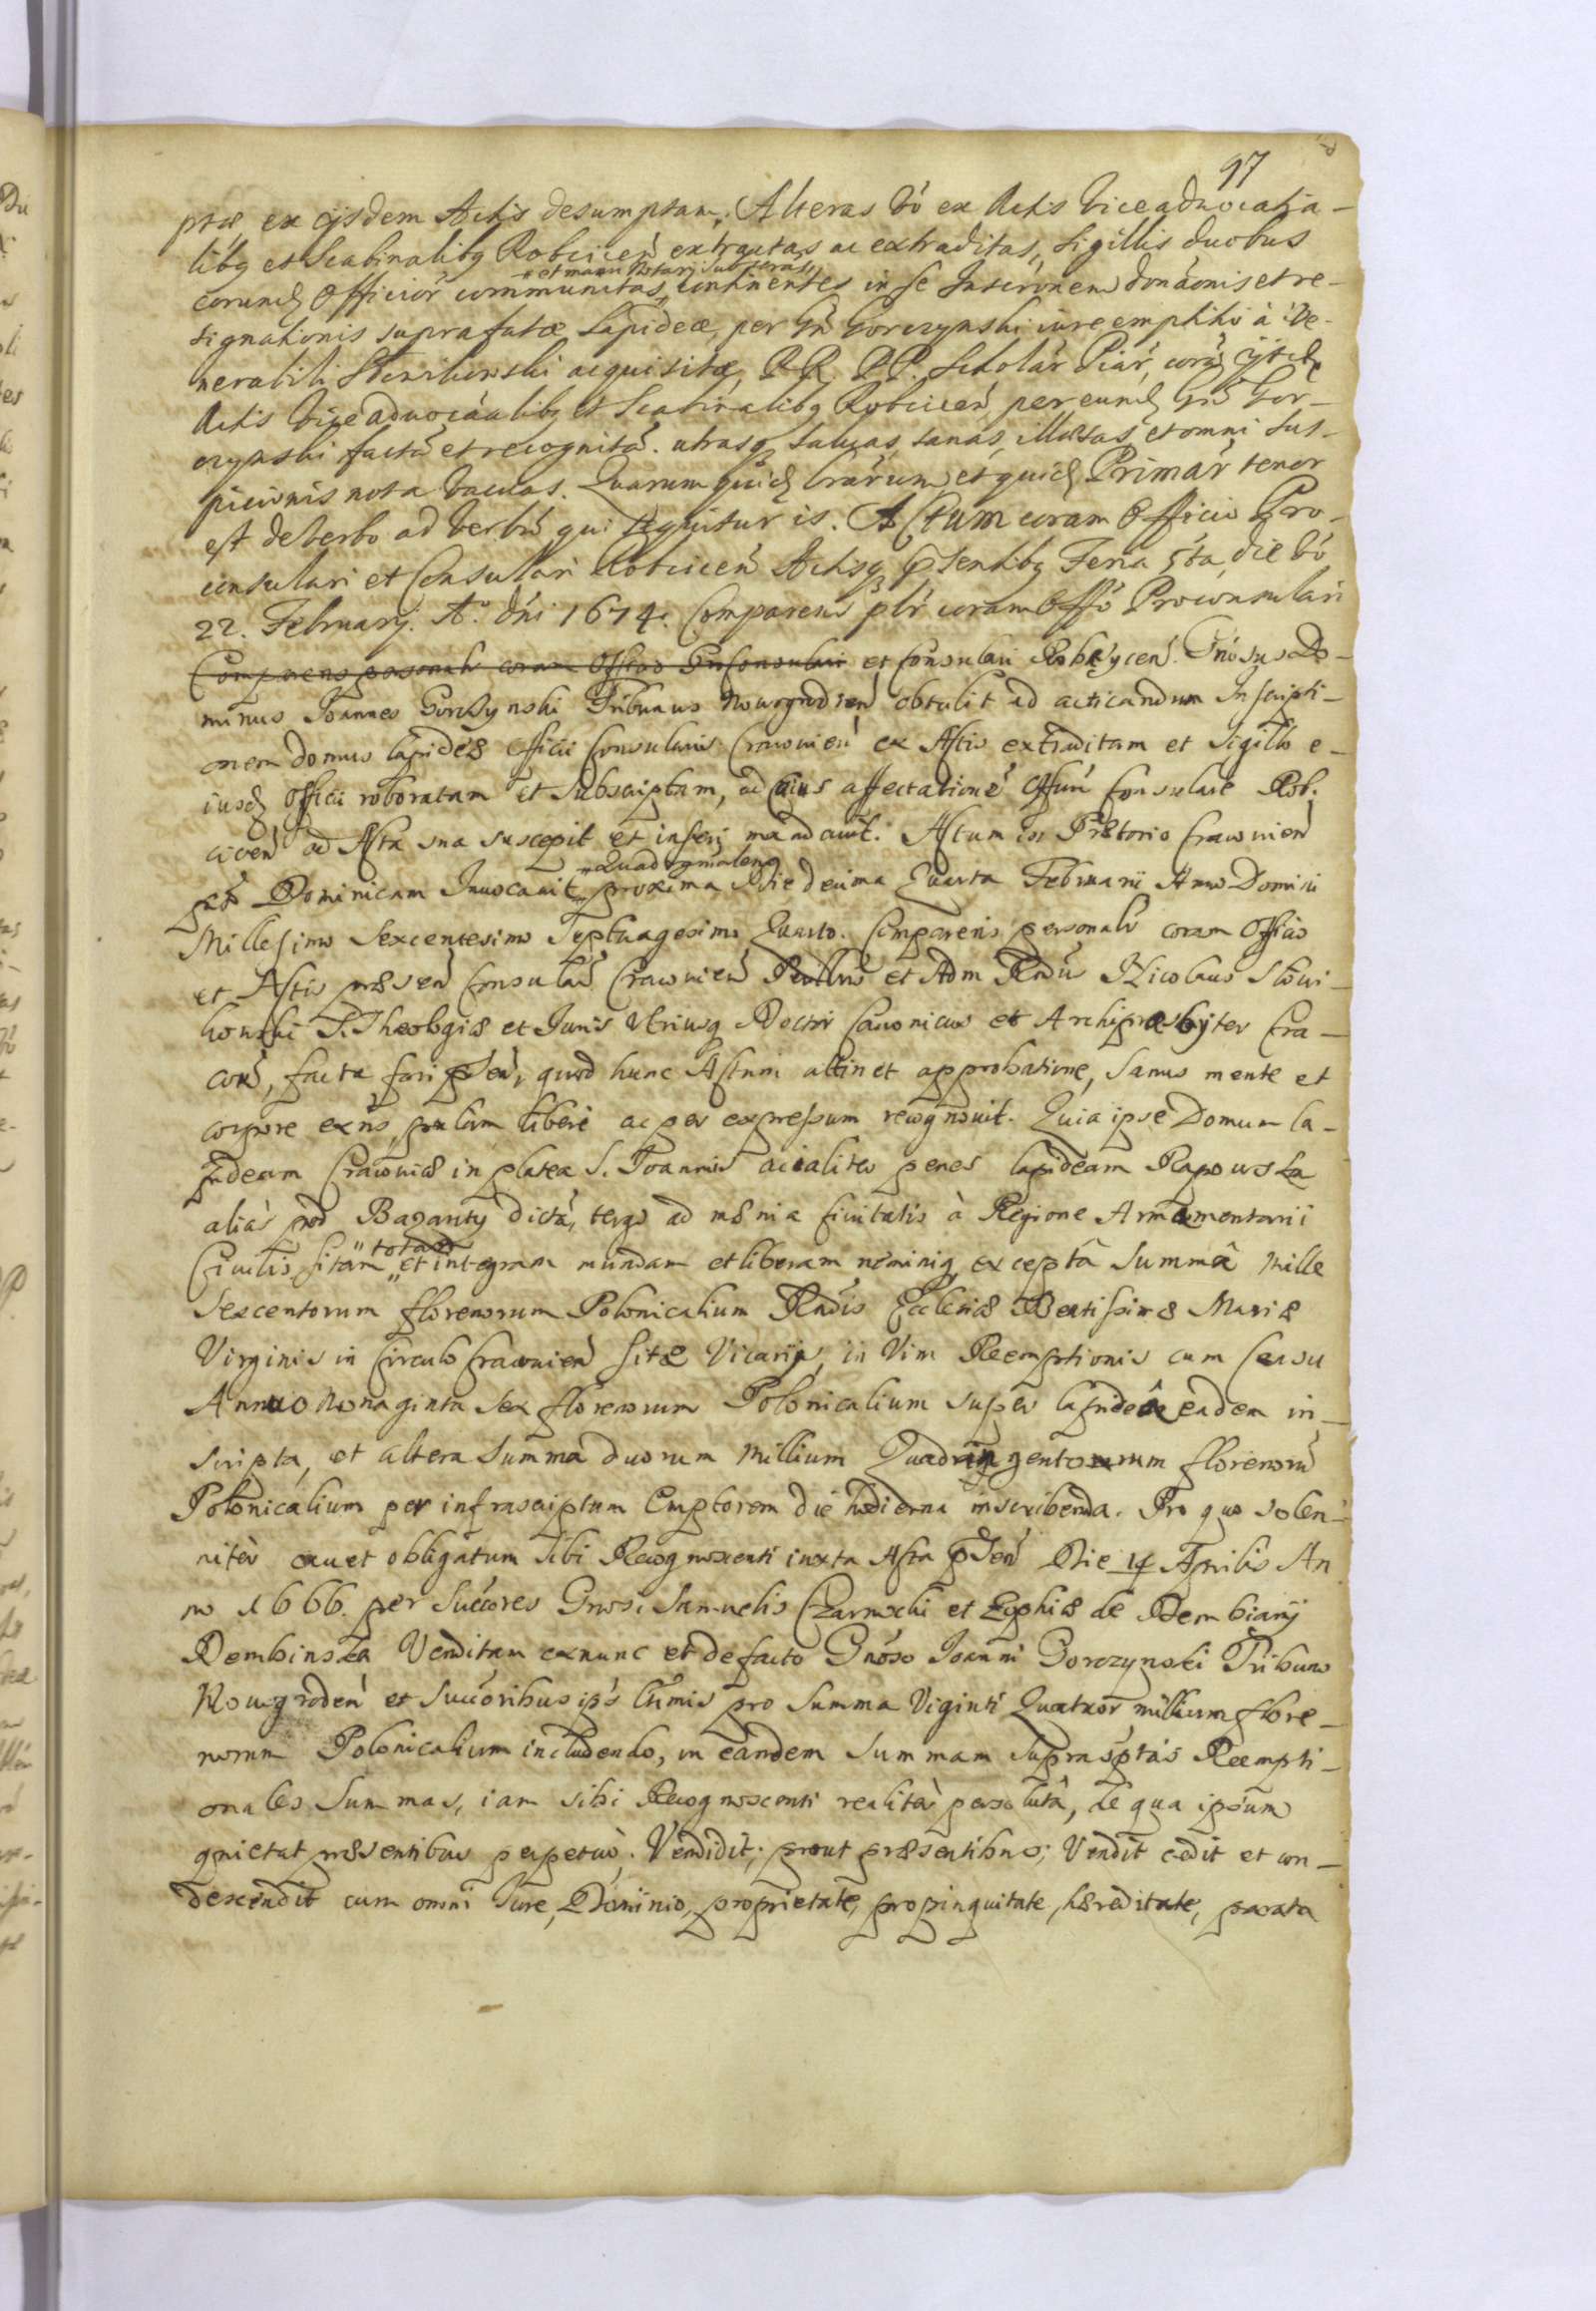 97
ptæ, ex ijsdem Actis desumptam; Alteras vó ex Actis Viceadvocatia-
libq et Scabinalibq Robcicen̄ extractas ac extraditas, Sigillis duobus
eorund Officior̄ communitas „et manu Notarij subscriptas„ continentes in se Inscrōnem donāonis et re-
signationis suprafatæ Lapideæ, per Gn̄ Gorczynski iure emptitio à Ve-
nerabili Słowikowski acquisitæ, RR. PP. Scholar̄ Piar̄, corā ijsd
Actis Viceadvocāalibq et Scabinalibq Robcicen̄, per eund Gn̄ Gor-
czynski factā et recognitā. utrasq, salvas, sanas, illæsas, et omni sus-
picionis nota vacuas. Quarum quid lrārum et quid Primar̄ tenor
est de verbo ad verbū qui sequitur is. Actum coram Officio Pro-
consulari et Consulari Robcicen̄ Actisq pr̄sentibq Feria 5ta, die vó
22. February. A.o dni 1674. Comparens plr̄ coram Offó Proconsulari
Comparens personalr coram Officio Proconsulari et Consulari Robcycen̄. Gnōsus Do-
minus Joannes Gorczynski Tribunus Nowogrodien̄ obtulit ad acticandum Inscripti-
onem domus lapideæ Officii Consularis Cracovien̄ ex Actis extraditam et Sigillo e-
iusd Officii roboratam et Subscriptam, ad Cuius affectationē Offūm Consulare Rob-
cicen̄ ad Acta sua suscepit et inseri mandavit. Actum in Prætorio Cracovien̄
post Dominicam Invocavit „Quadragesimalem„ proxima Die decima Quarta Februarii Anno Domini
Millesimo Sexcentesimo Septuagesimo Quarto. Comparens personalr̄ coram Officio
et Actis præsen̄ Consular̄ Cracovien̄ Perillris et Adm Rndūs Nicolaus Słowi-
kowski S. Theologiæ et Juris Utriusq Doctor Canonicus et Archipræsbyter Cra-
cov̄, facta fori psen̄, quod hunc Actum attinet approbatione, sanus mente et
corpore exn̄s, palam libere ac per expressum recognovit. Quia ipse Domum la-
pideam Cracoviæ in platea S. Joannis acialiter penes lapideam Rapowska
aliàs pod Bazanty dictā, tergo ad mœnia Civitatis à Regione Armamentarii
Civilis sitam „totam„ et integram mundam et liberam neminiq, exceptâ Summâ Mille
Sexcentorum florenorum Polonicalium Rndis Ecclesiæ Beatissimæ Mariæ
Virginis in Circulo Cracovien̄ Sitæ Vicarijs, in Vim Reemptionis cum Censu
Annuo Nonaginta Sex florenorum Polonicalium super lapideâ eadem in-
scripta, et altera Summa duorum Millium Quadringentorum florenorū
Polonicalium per infrascriptum Emptorem die hodierna inscribenda. Pro quo solen-
niter cavet obligatum sibi Recognoscenti iuxta Acta psen̄ Die 14 Aprilis An
no 1666. per Succores Gnosi Samuelis Czarnocki et Zophiæ de Dembiany
Dembinska Venditam exnunc et defacto Gnōso Joanni Gorczynski Tribuno
Nowogroden̄ et Succoribus ips̄ ltimis pro Summa Viginti Quatuor millium flore-
norum Polonicalium includendo, in eandem Summam suprascptas Reempti-
onales Summas, iam sibi Recognoscenti realitèr persolutâ, de qua ipsum
quietat præsentibus perpetuo. Vendidit, prout præsentibus, Vendit cedit et con-
descendit cum omni Jure, Dominio, proprietate, propinquitate, hæreditate, parata